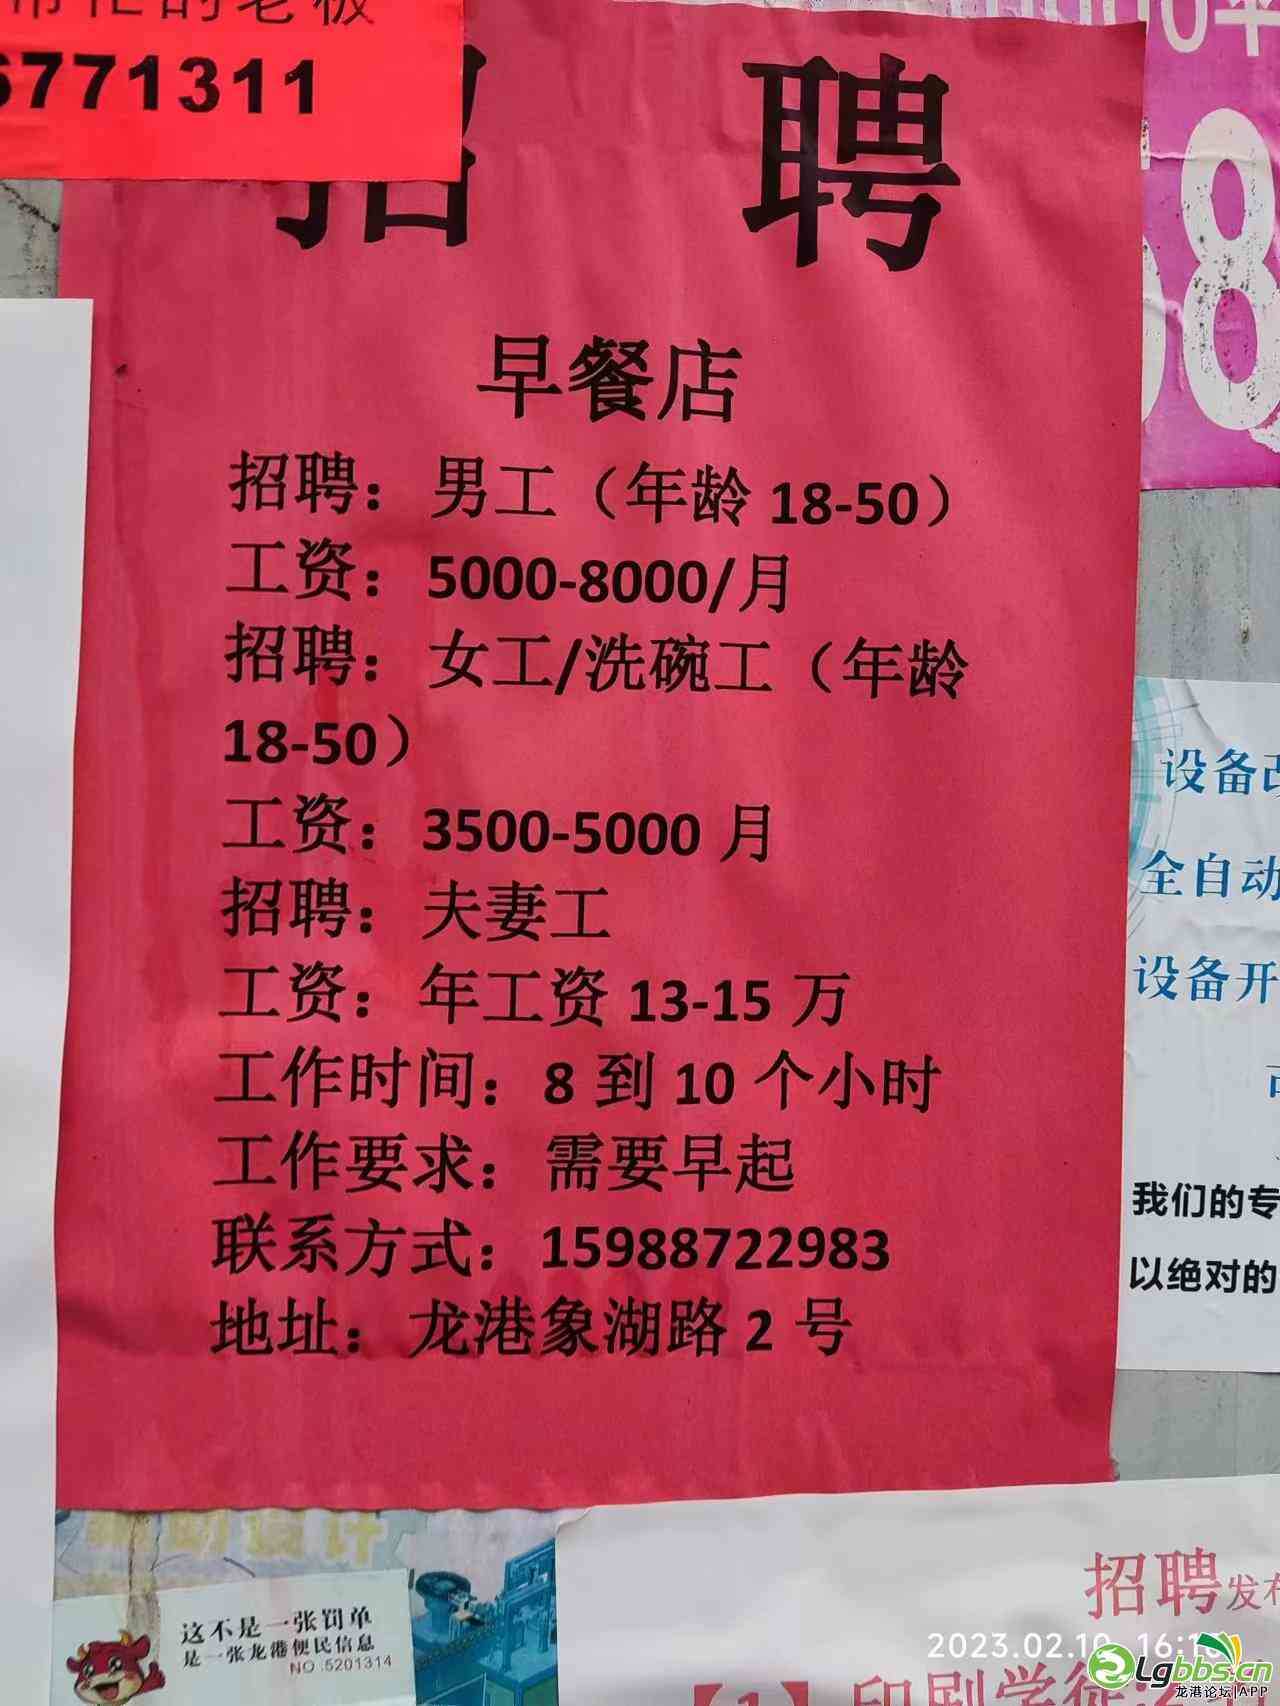 帮忙的老板
6771311
招 聘
早餐店
招聘：男工（年龄 18-50）
工资：5000-8000/月
招聘：女工/洗碗工（年龄
18-50）
工资：3500-5000 月
招聘：夫妻工
工资：年工资 13-15 万
工作时间：8 到 10 个小时
工作要求：需要早起
联系方式：15988722983
地址：龙港象湖路 2 号
58
设备改
全自动
设备开
我们的专
以绝对的
这不是一张罚单
是一张龙港便民信息
NO.5201314
招聘发布
2023.02.10 16:16
Lgbbs.cn
龙港论坛|APP
【1】印刷学徒:2